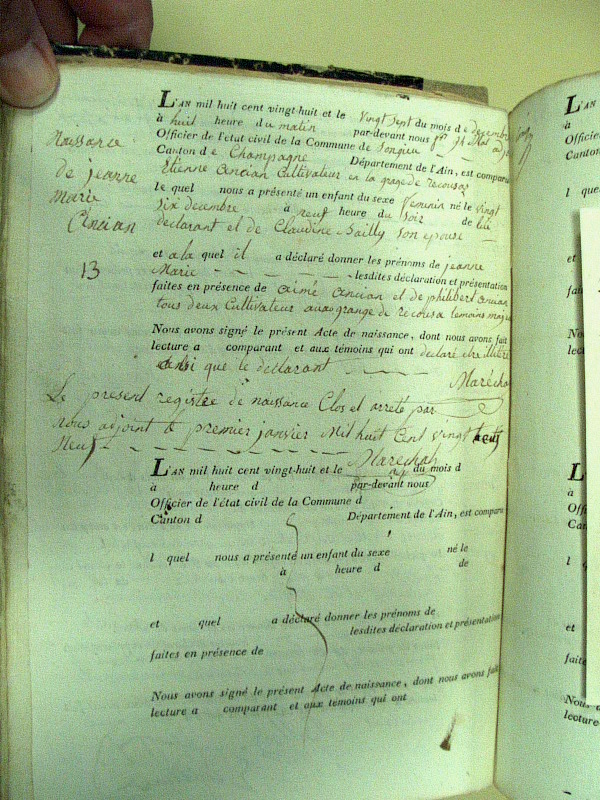 Naissance
de jeanne
Marie
Ancian
13
L'AN mil huit cent vingt-huit et le vingt sept du mois d e decembre
à huit heure du matin par-devant nous
Officier de l'état civil de la Commune de Songieu
Canton d e Champagne Département de l'Ain, est comparu
Etienne ancian Cultivateur en la grange de recousa
le quel nous a présenté un enfant du sexe feminin né le vingt
six decembre à neuf heure du soir de lui
declarant et de Claudine Bailly son epouse
et a la quel il a déclaré donner les prénoms de jeanne
Marie lesdites déclaration et présentation
faites en présence de aimé ancian et de philibert ancian
tous deux Cultivateur aux grange de recousa temoins
Nous avons signé le présent Acte de naissance, dont nous avons fait
lecture a comparant et aux témoins qui ont declaré etre illiteré
ainsi que le declarant
Maréchal
Le present registre de naissance Clos et arreté par
nous adjoint le premier janvier Mil huit Cent vingt
neuf
Maréchal
L'AN mil huit cent vingt-huit et le du mois d
à heure d par-devant nous
Officier de l'état civil de la Commune d
Canton d Département de l'Ain, est comparu
l quel nous a présenté un enfant du sexe né le
à heure d de
et quel a déclaré donner les prénoms de
lesdites déclaration et présentation
faites en présence de
Nous avons signé le présent Acte de naissance, dont nous avons fait
lecture a comparant et aux témoins qui ont
L'AN
à
Officier
Canton
l que
et
fai
No
lec
L
à
Offi
Can
l q
et
faite
Nous
lecture